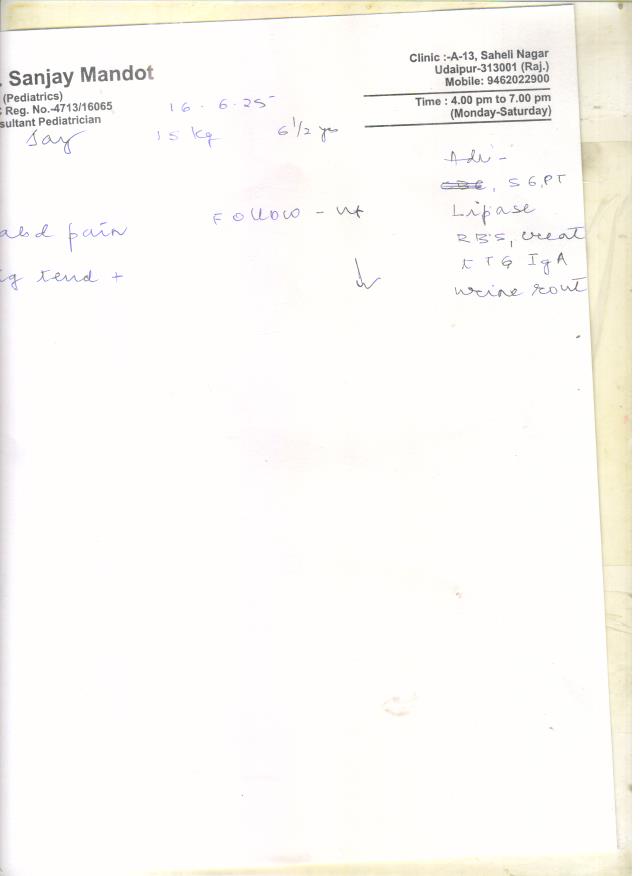 . Sanjay Mandot
(Pediatrics)
C Reg. No.-4713/16065
sultant Pediatrician
Clinic :-A-13, Saheli Nagar
Udaipur-313001 (Raj.)
Mobile: 9462022900
Time : 4.00 pm to 7.00 pm
(Monday-Saturday)
16 . 6.25
15 kg 6 1/2 yr
Adv -
CBC, SGPT
abd pain Follow - up Lipase
RBS, creat
ig tend + tTG IgA
urine rout